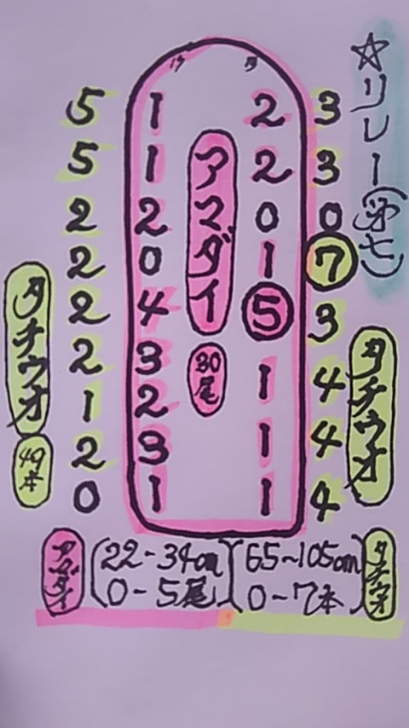 ☆リレー(㐧七)
3
3
0
7
3
4
4
4
タチウオ
2
2
0
1
5
1
1
1
アマダイ
30尾
1
1
2
0
4
3
2
3
1
5
5
2
2
2
2
1
2
0
タチウオ
49本
アマダイ
(22-34cm
0-5尾)
(65~105cm
0-7本)
タチウオ